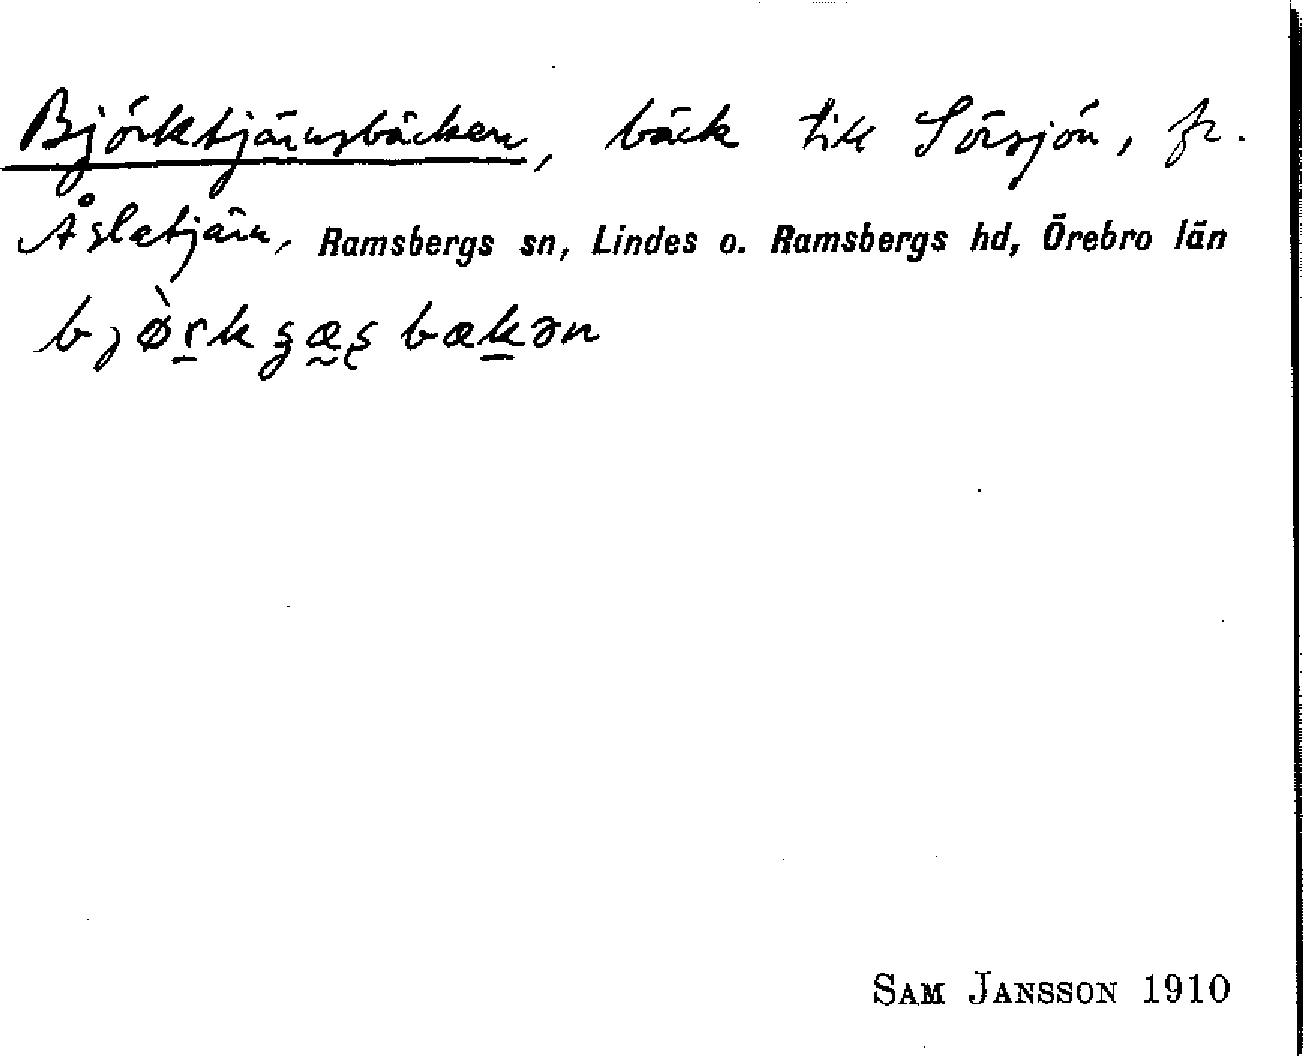 Björktjärnsbäcken, bäck till Sörsjön, fr.
Åslatjärn, Ramsbergs sn, Lindes o. Ramsbergs hd, Örebro län
SAM JANSSON 1910